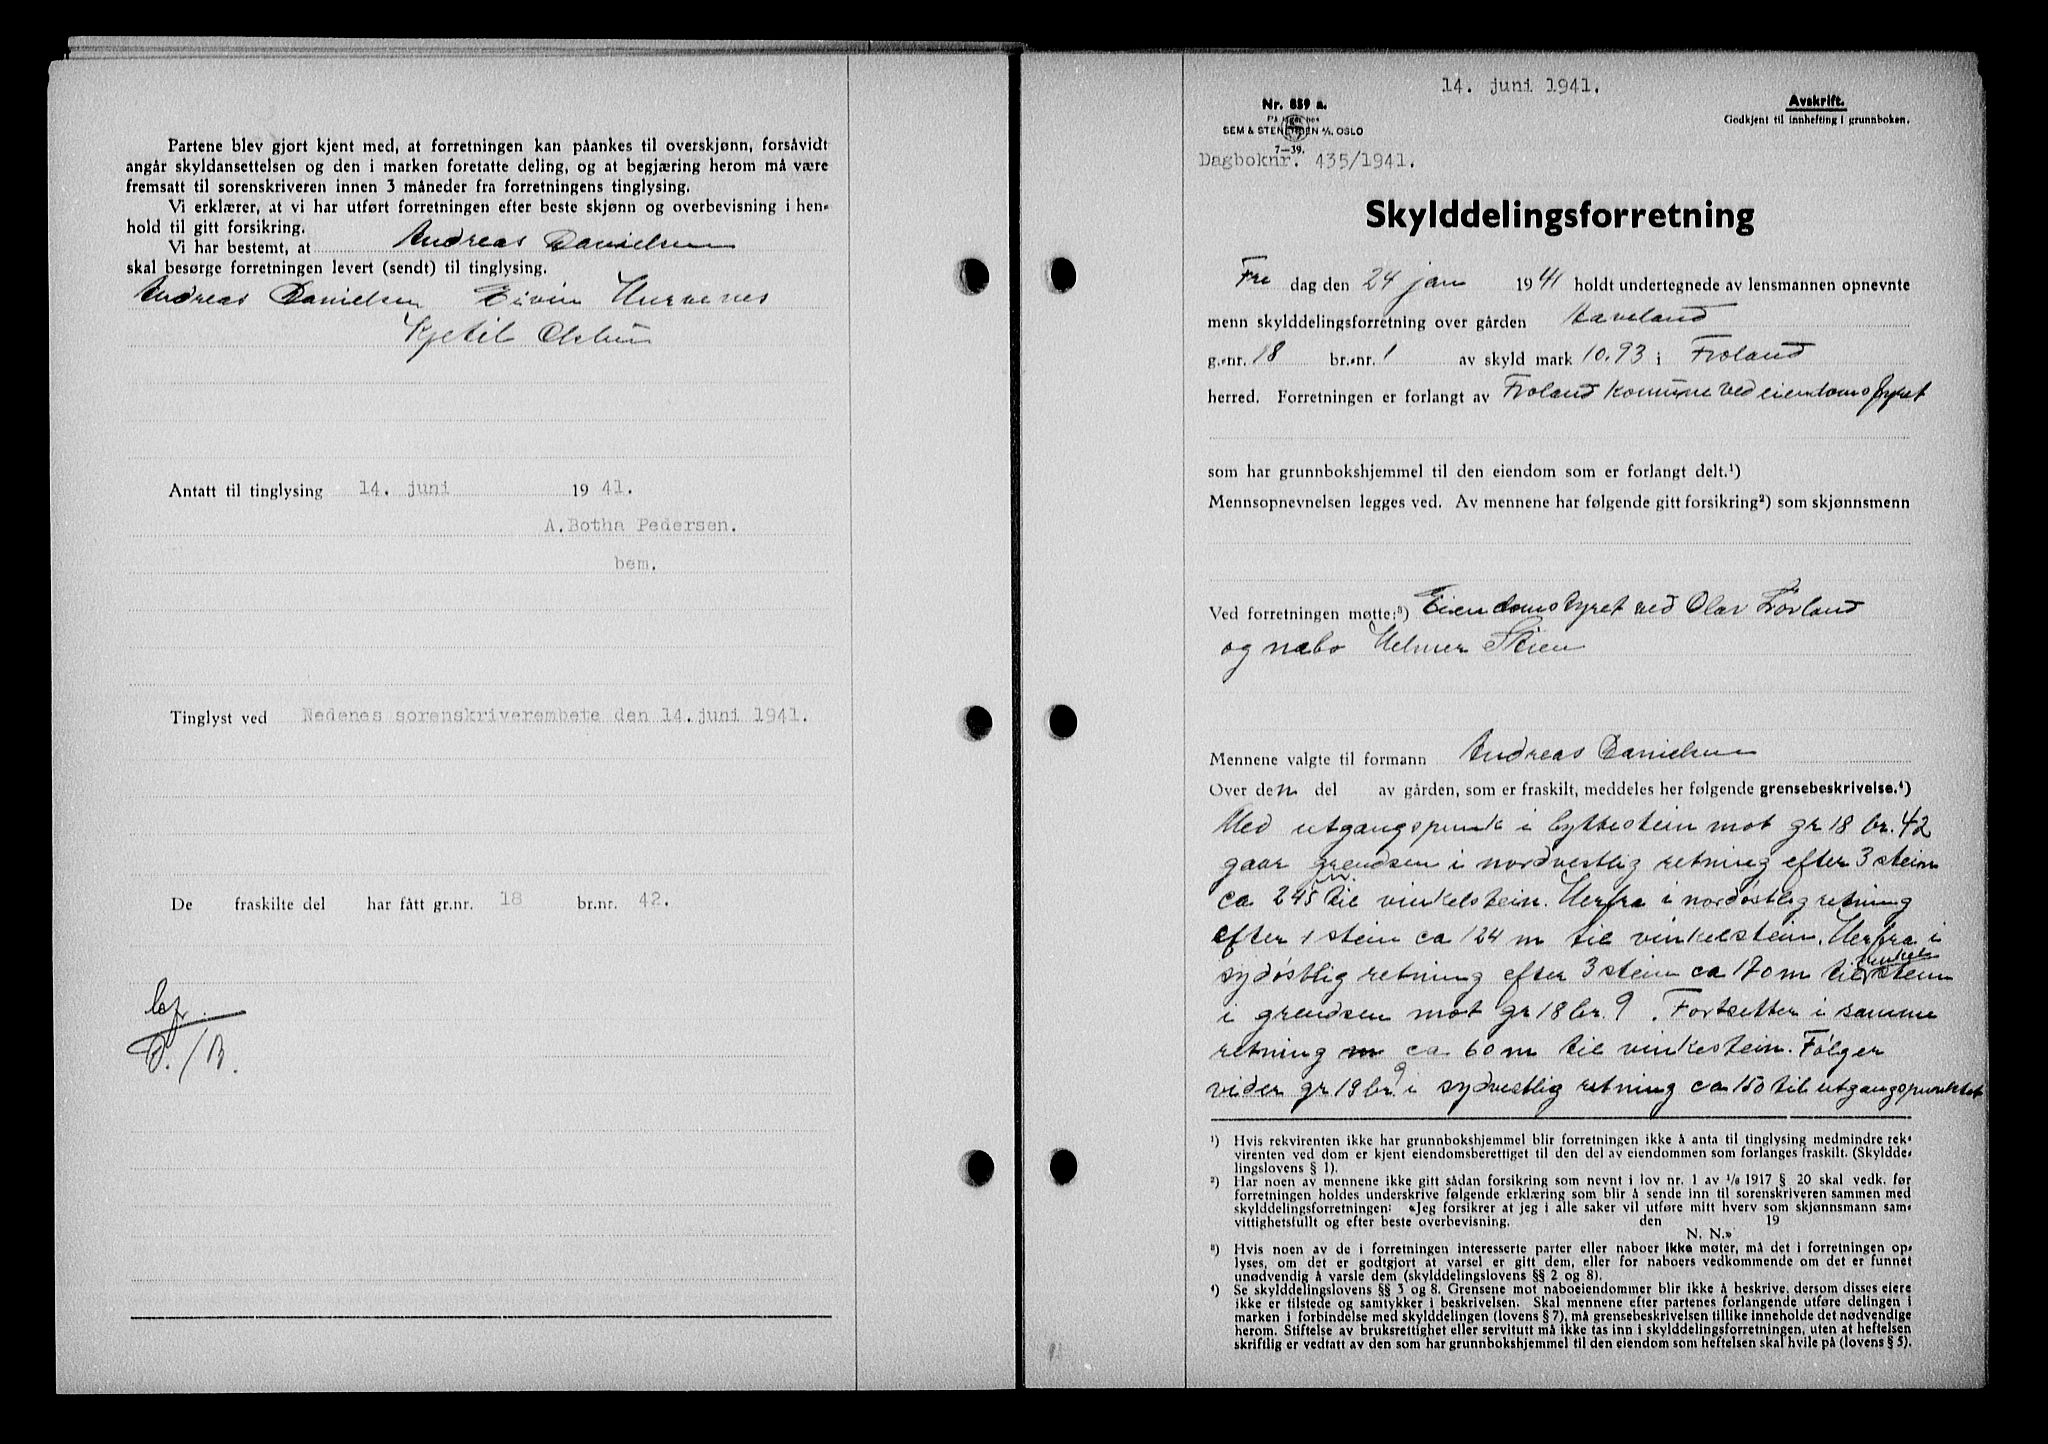 Partene blev gjort kjent med, at forretningen kan påankes til overskjønn, forsåvidt
angår skyldansettelsen og den i marken foretatte deling, og at begjæring herom må være
fremsatt til sorenskriveren innen 3 måneder fra forretningens tinglysing.
Vi erklærer, at vi har utført forretningen efter beste skjønn og overbevisning i hen-
hold til gitt forsikring.
Vi har bestemt, at Andreas Danielsen
skal besørge forretningen levert (sendt) til tinglysing.
Andreas Danielsen Eivin Hurvenes
Kjetil Olsbu
Antatt til tinglysing 14. juni 1941.
A. Botha Pedersen.
bem.
Tinglyst ved Nedenes sorenskriverembete den 14. juni 1941.
De fraskilte del har fått gr.nr. 18 br.nr. 42.
14. juni 1941.
Nr. 859 a.
På lager hos
SEM & STENERSEN A/S, OSLO
7-39.
Avskrift.
Godkjent til innhefting i grunnboken.
Dagboknr. 435/1941.
Skylddelingsforretning
Fre dag den 24 jan 1941 holdt undertegnede av lensmannen opnevnte
menn skylddelingsforretning over gården Haveland
g.-nr. 18 br.-nr. 1 av skyld mark 10.93 i Froland
herred. Forretningen er forlangt av Froland Komune ved eiendomsstyret
som har grunnbokshjemmel til den eiendom som er forlangt delt.¹)
Mennsopnevnelsen legges ved. Av mennene har følgende gitt forsikring²) som skjønnsmenn
Ved forretningen møtte:³) Eiendomstyret ved Olav Frøland
og nabo Helmer Skien
Mennene valgte til formann Andreas Danielsen
Over den del av gården, som er fraskilt, meddeles her følgende grensebeskrivelse.⁴)
Med utgangspunk i byttestein mot gr 18 br. 42
gaar grendsen i nordvestlig retning efter 3 stein
ca 245 m. til vinkelstein. Herfra i nordøstlig retning
efter 1 stein ca 124 m til vinkelstein. Herfra i
sydøstlig retning efter 3 stein ca 170 m til vinkelstein
i grendsen mot gr 18 br. 9. Fortsetter i samme
retning ca 60 m til vinkestein. Følger
vider gr 18 br. 9 i sydvestlig retning ca 150 til utgangspunktet
¹) Hvis rekvirenten ikke har grunnbokshjemmel blir forretningen ikke å anta til tinglysing medmindre rek-
virenten ved dom er kjent eiendomsberettiget til den del av eiendommen som forlanges fraskilt. (Skyldde-
lingslovens § 1).
²) Har noen av mennene ikke gitt sådan forsikring som nevnt i lov nr. 1 av 1/8 1917 § 20 skal vedk. før
forretningen holdes underskrive følgende erklæring som blir å sende inn til sorenskriveren sammen med
skylddelingsforretningen: «Jeg forsikrer at jeg i alle saker vil utføre mitt hverv som skjønnsmann sam-
vittighetsfullt og efter beste overbevisning. den 19
N. N.»
³) Hvis noen av de i forretningen interesserte parter eller naboer ikke møter, må det i forretningen op-
lyses, om det er godtgjort at varsel er gitt dem, eller for naboers vedkommende om det er funnet
unødvendig å varsle dem (skylddelingslovens §§ 2 og 8).
⁴) Se skylddelingslovens §§ 3 og 8. Grensene mot naboeiendommer blir ikke å beskrive, dersom disses eiere
ikke er tilstede og samtykker i beskrivelsen. Skal mennene efter partenes forlangende utføre delingen i
marken i forbindelse med skylddelingen (lovens § 7), må grensebeskrivelsen tillike inneholde det nødvendige
herom. Stiftelse av bruksrettighet eller servitutt må ikke tas inn i skylddelingsforretningen, uten at heftelsen
skriftlig er vedtatt av den som har grunnbokshjemmel til den eiendom som heftelsen skal hvile på (lovens § 5).